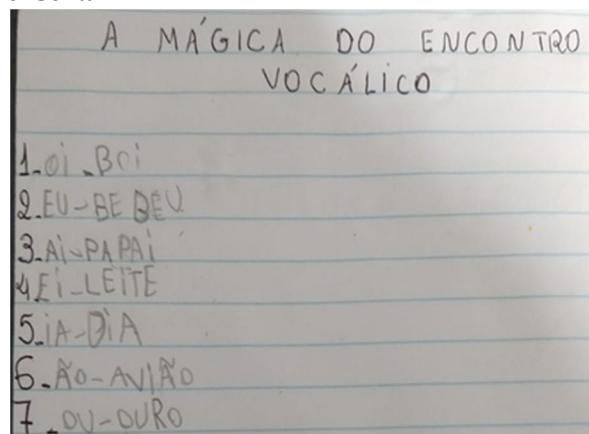 A MÁGICA DO ENCONTRO
VOCÁLICO
1-Oi-BOi
2-EU-BEBEU
3-Ai-PAPAi
4Ei-LEiTE
5-iA-DiA
6-ÃO-AViÃO
7-OU-OURO